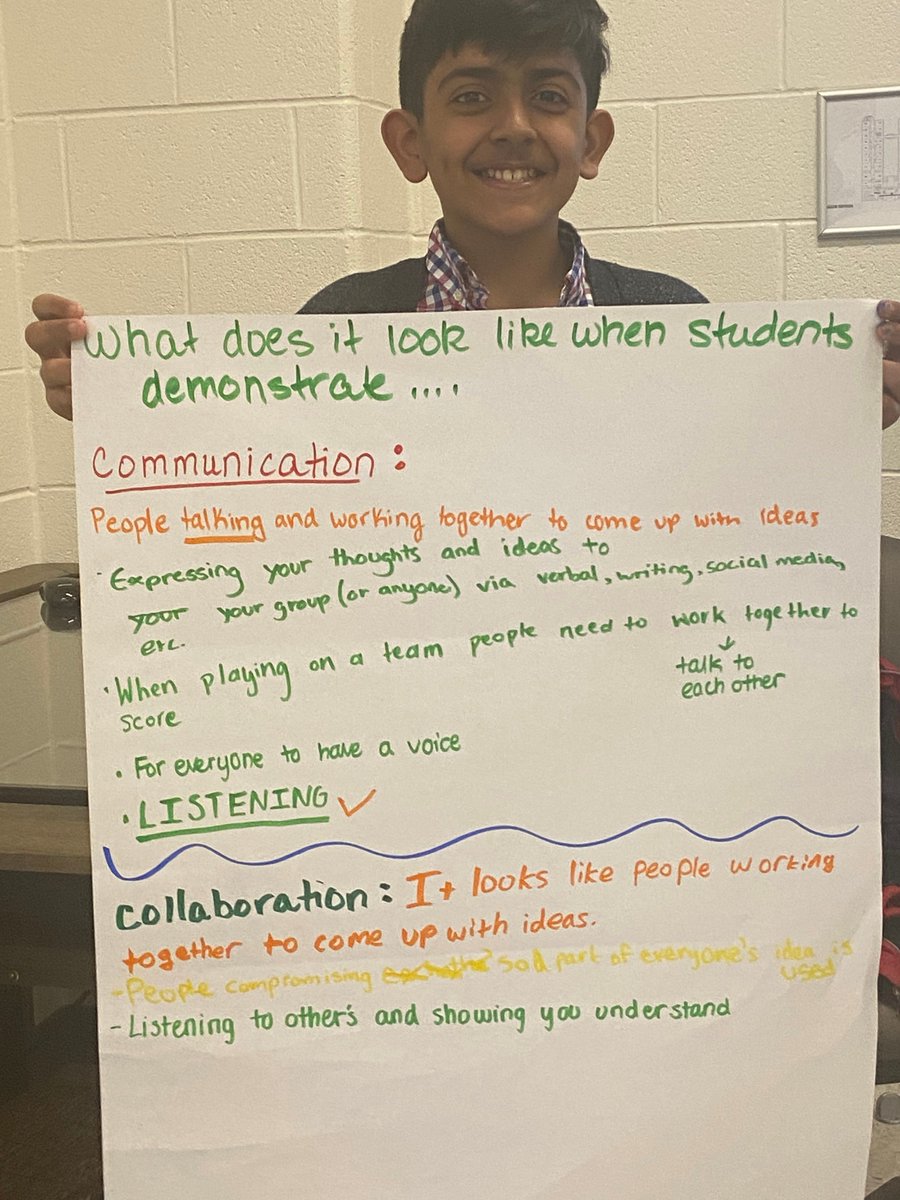 What does it look like when students
demonstrate ....
Communication:
People talking and working together to come up with ideas
· Expressing your thoughts and ideas to
your your group (or anyone) via verbal, writing, social media,
etc.
· When playing on a team people need to work together to
score
↓
talk to
each other
· For everyone to have a voice
· LISTENING ✓
Collaboration: It looks like people working
together to come up with ideas.
- People compromising so a part of everyone's idea is
used
- Listening to other's and showing you understand